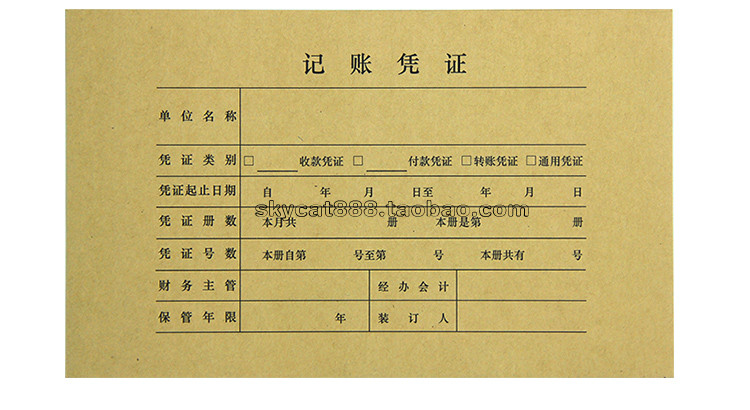 记账凭证
单位名称
凭证类别 □______收款凭证 □______付款凭证 □转账凭证 □通用凭证
凭证起止日期 自 年 月 日至 年 月 日
skycat888.taobao.com
凭证册数 本月共 册 本册是第 册
凭证号数 本册自第 号至第 号 本册共有 号
财务主管 经办会计
保管年限 年 装订人